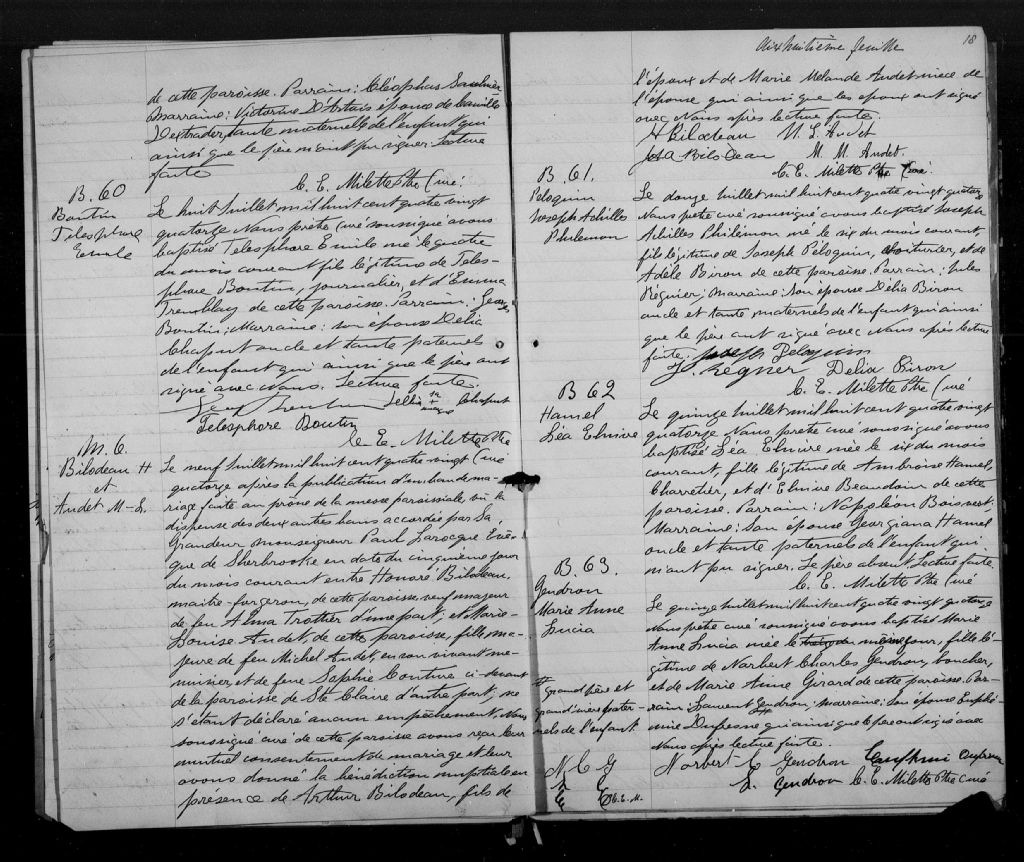 de cette paroisse. Parrain: Cléophas
Marraine: Victorine D'Artois épouse de Camille
Dextrader, tante maternelle de l'enfant qui
ainsi que le père n'ont pu signer. Lecture
faite
C. E. Milette Ptre Curé
B. 60
Boutin
Telesphore
Emile
Le huit Juillet mil huit cent quatre vingt
quatorze Nous prêtre curé soussigné avons
baptisé Telesphore Emile né le quatre
du mois courant fils légitime de Teles-
phore Boutin, journalier, et d'Emma
Tremblay de cette paroisse. Parrain: Georges
Boutin; Marraine: son épouse Delia
Chaput oncle et tante paternels
de l'enfant qui ainsi que le père ont
signé avec Nous. Lecture faite.
Boutin Chaput
Telesphore Boutin
C. E. Milette Ptre
M. 6.
Bilodeau H
et
Audet M-L
Le neuf Juillet mil huit cent quatre vingt Curé
quatorze après la publication d'un ban de ma-
riage faite au prône de la messe paroissiale vu la
dispense des deux autres bans accordée par Sa
Grandeur Monseigneur Paul Larocque Evê-
que de Sherbrooke en date du cinquième jour
du mois courant entre Honoré Bilodeau,
maitre-forgeron, de cette paroisse, veuf majeur
de feu Alma Trothier d'une part, et Marie-
Louise Audet, de cette paroisse, fille ma-
jeure de feu Michel Audet, en son vivant me-
nuisier, et de feue Sophie Couture ci-devant
de la paroisse de Ste Claire d'autre part, ne
s'étant déclaré aucun empêchement, Nous
soussigné curé de cette paroisse avons reçu leur
mutuel consentement de mariage et leur
avons donné la bénédiction nuptiale en
présence de Arthur Bilodeau, fils de
dix huitième feuille
18
l'époux et de Marie Melande Audet niece de
l'épouse qui ainsi que les époux ont signé
avec Nous après lecture faite.
H Bilodeau M. L. Audet
Bilodeau M. M. Audet.
C. E. Milette Ptre Curé
B. 61.
Péloquin
Joseph Achilles
Philemon
Le douze Juillet mil huit cent quatre vingt quatorze
Nous prêtre curé soussigné avons baptisé Joseph
Achilles Philémon né le six du mois courant
fils légitime de Joseph Péloquin, voiturier, et de
Adèle Biron de cette paroisse. Parrain: Jules
Régnier; Marraine: Son épouse Delia Biron
oncle et tante maternels de l'enfant qui ainsi
que le père ont signé avec Nous après lecture
faite. Joseph Peloquin
J. Regner Delia Biron
C. E. Milette Ptre Curé
B 62
Hamel
Léa Elmire
Le quinze Juillet mil huit cent quatre vingt
quatorze Nous prêtre curé soussigné avons
baptisé Léa Elmire née le six du mois
courant, fille légitime de Ambroise Hamel,
Charretier, et d'Elmire Beaudoin de cette
paroisse. Parrain: Napoléon Boisvert;
Marraine: Son épouse Georgiana Hamel
oncle et tante paternels de l'enfant qui
n'ont pu signer. Le père absent. Lecture faite.
C. E. Milette Ptre Curé
B. 63.
Gendron
Marie Anne
Lucia
Le quinze Juillet mil huit cent quatre vingt quatorze
Nous prêtre curé soussigné avons baptisé Marie
Anne Lucia née le même jour, fille lé-
gitime de Norbert Charles Gendron, boucher,
et de Marie Anne Girard de cette paroisse. Par-
rain Laurent Gendron, marraine: Son épouse Euphé-
mie Dufresne qui ainsi que le père ont signé avec
Nous après lecture faite.
grand père et
grand'mère pater-
nels de l'enfant
N C G
C. E. M.
Norbert C Gendron
L. Gendron C. E. Milette Ptre Curé